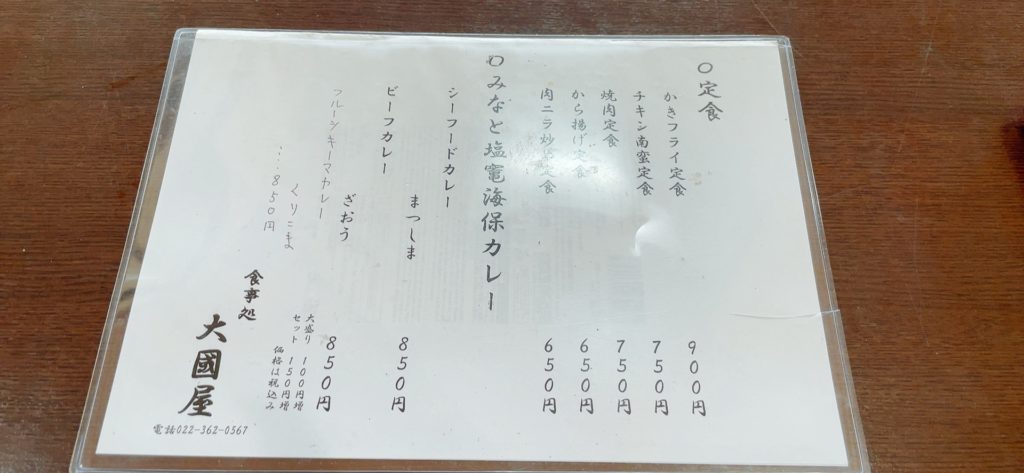 〇定食
かきフライ定食 900円
チキン南蛮定食 750円
焼肉定食 750円
から揚げ定食 650円
肉ニラ炒め定食 650円
〇みなと塩竈海保カレー
シーフードカレー
まつしま 850円
ビーフカレー
ざおう 850円
フルーツキーマカレー
くりこま
...850円
大盛り 100円増
セット 150円増
価格は税込み
食事処
大國屋
電話022-362-0567